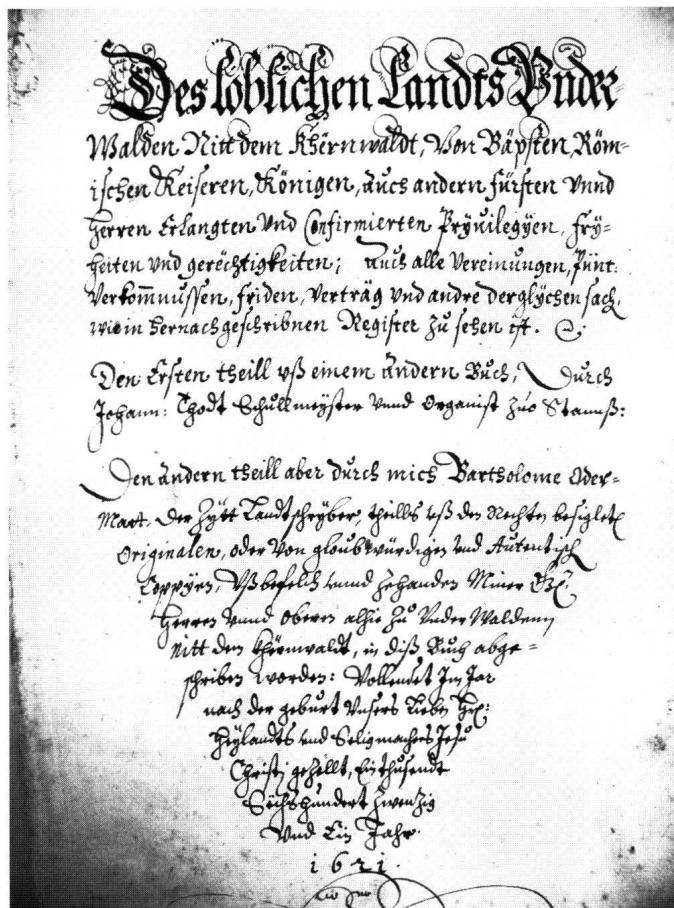 Des loblichen Landts Vnder-
Walden Nitt dem Khërnwaldt, Von Bäpsten, Röm-
ischen Keiseren, Königen, auch andern fürsten vnnd
herren Erlangten Vnd Confirmierten Pryuilegyen, fry-
heiten vnd gerechtigkeiten; auch alle vereinungen, Pünt:
verkomnussen, friden, verträg vnd andre derglychen sach,
wie in hernachgeschribnen Register zu sehen ist.
Den Ersten theill vß einem andern Buch, Durch
Johann: Thodt Schullmeyster vnnd Organist zuo Stannß:
Den andern theill aber durch mich Bartholome Oder-
Mart, Der Zytt Landtschryber, theills vß den Rechten besigleten
Originalen, oder von gloubwürdigen vnd Autentisch
Coppyen, Vß befelch vnnd zehanden Miner
Herren vnnd oberen alhie zu Vnder Waldenn
nitt dem khërnwaldt, in diß Buch abge-
schriben worden: Vollendet Im Jar
nach der geburt Vnsers Lieben
Heylandts vnd Seligmachers Jesu
Christj gezellt, Ein thusendt
Sechshundert zwenzig
Vnd Ein Jahr.
1621.